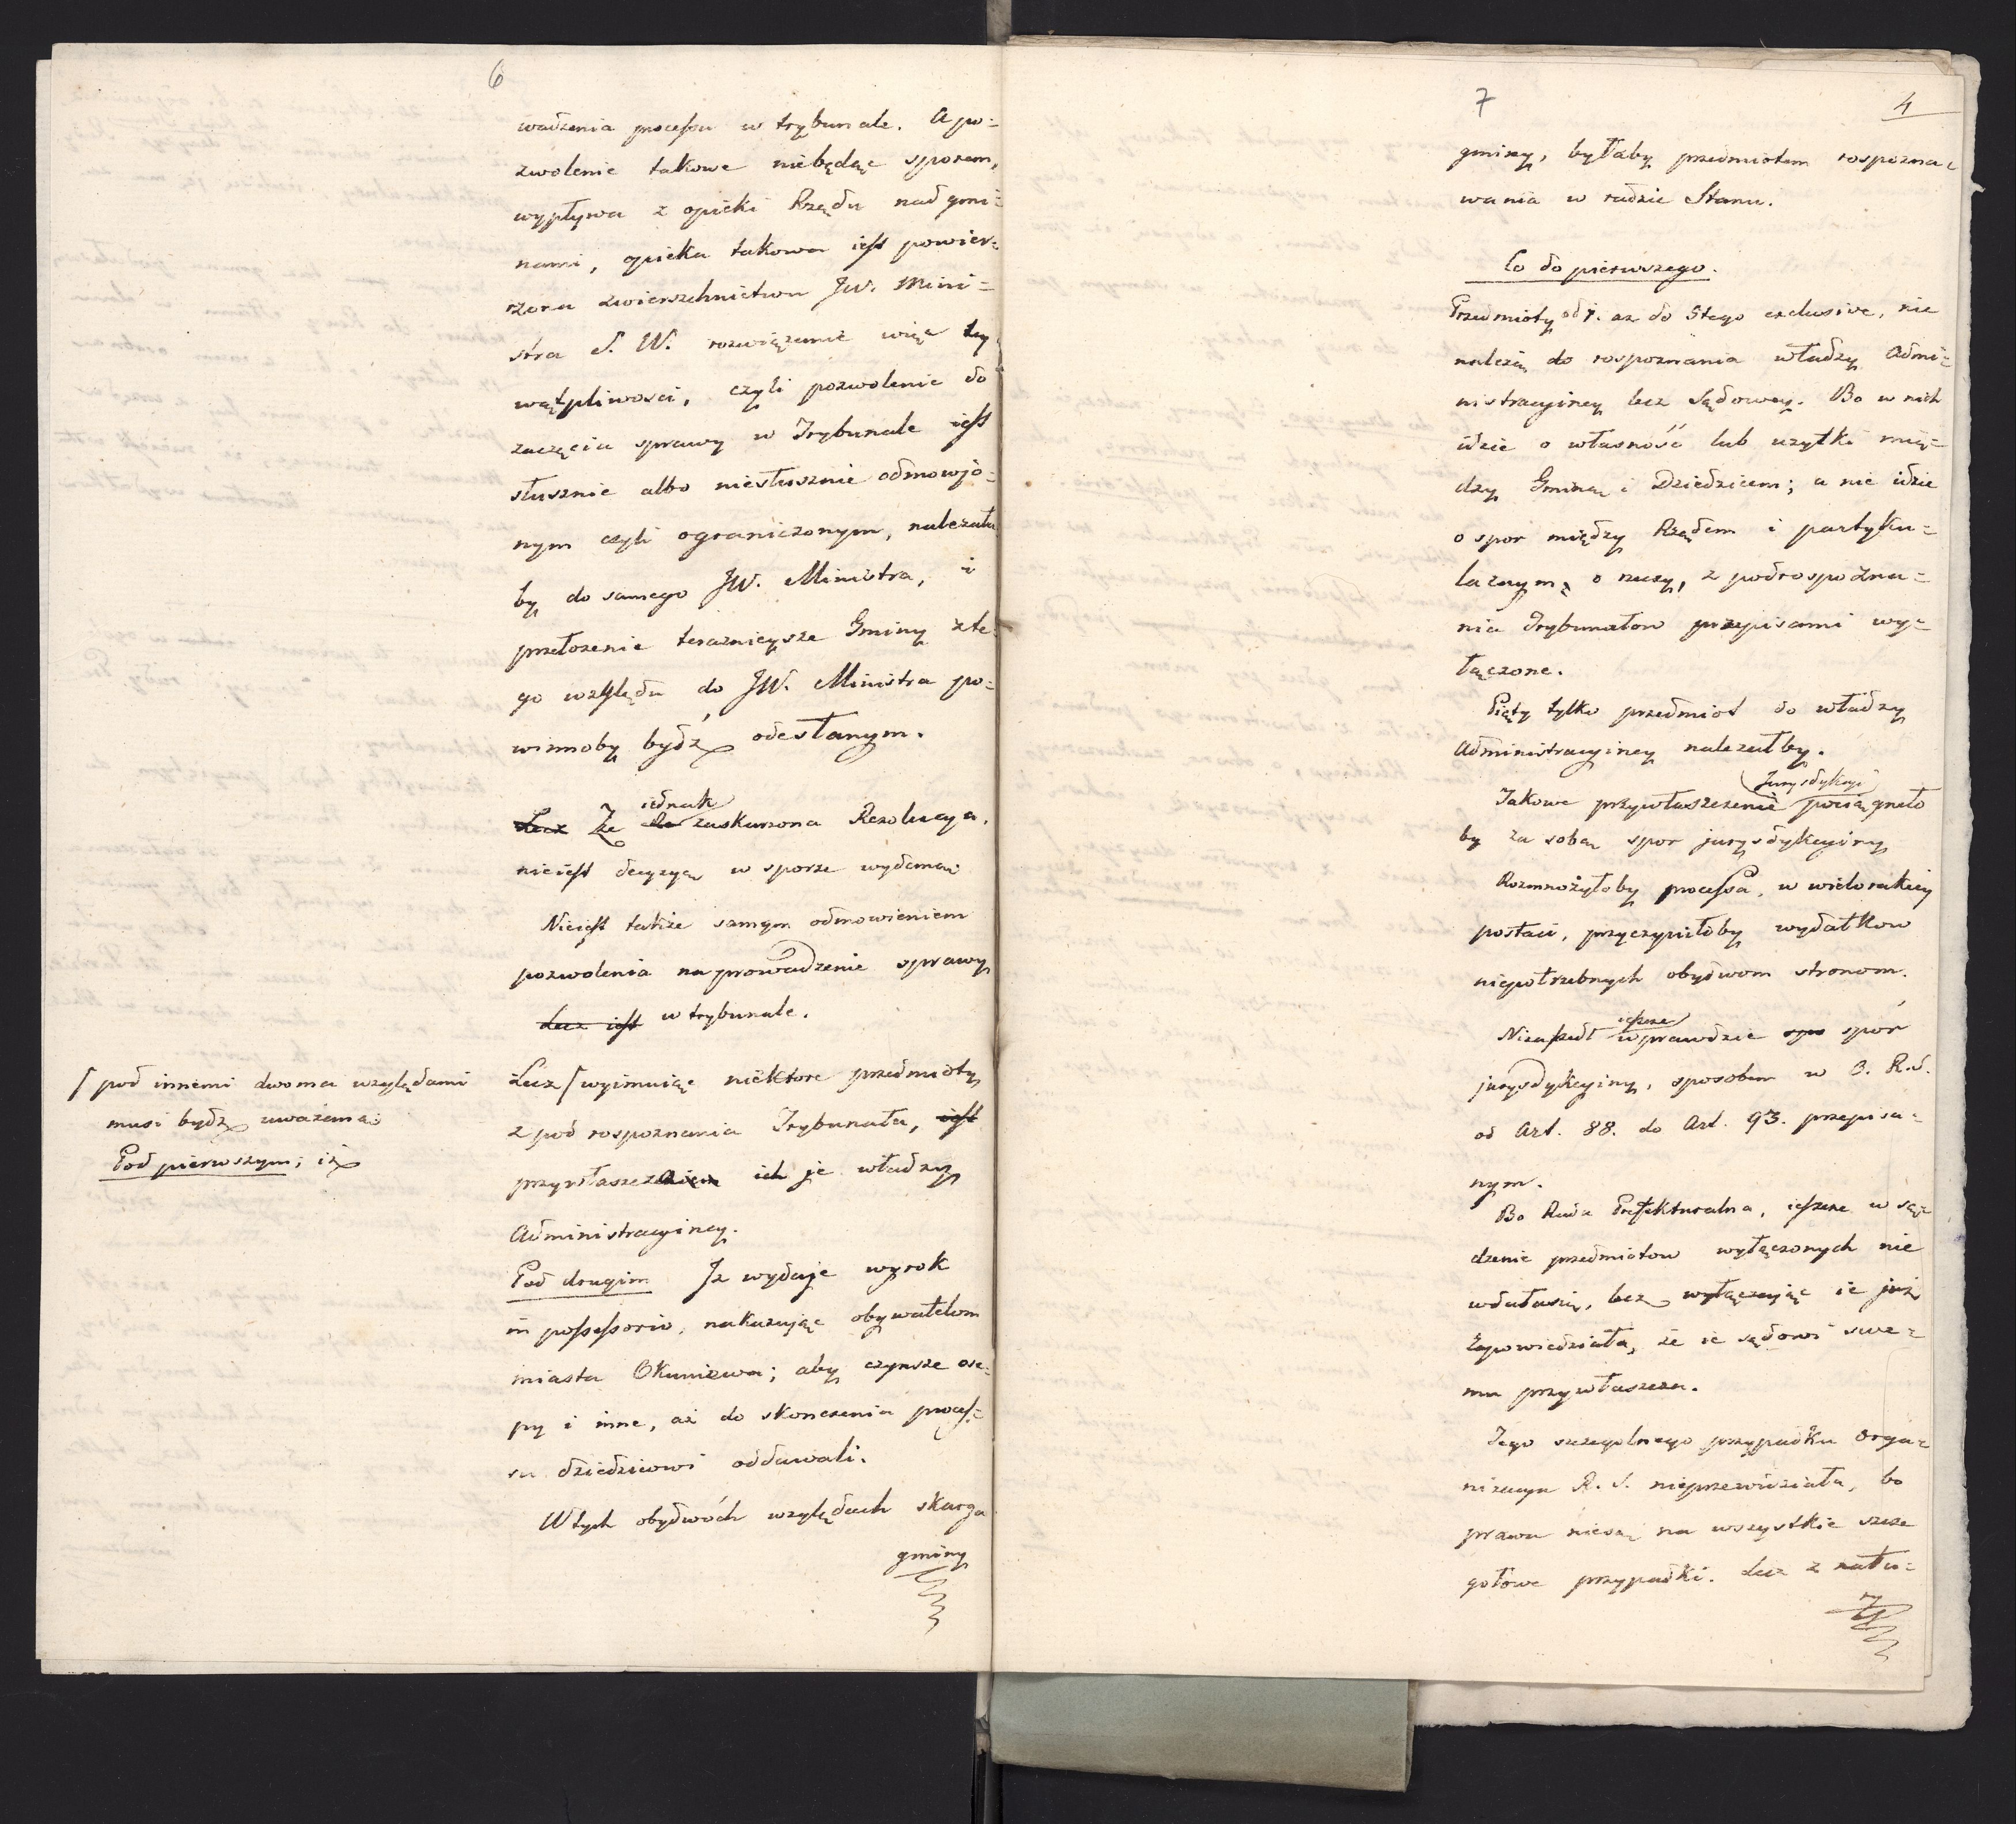 6
wadzenia processu w trybunale. A po=
zwolenie takowe niebędąc sporem,
wypływa z opieki Rządu nad gmi=
nami, opieka takowa iest powier=
zona zwierzchnictwu JW. Mini=
stra S. W. rozwiązanie więc tey
wątpliwosci, czyli pozwolenie do
zaczęcia sprawy w Trybunale iest
słusznie albo niesłusznie odmowio=
nym czyli ograniczonym, należała
by do samego JW. Ministra, i
przełożenie teraznieysze Gminy z te=
go względu do JW. Ministra po=
winnoby bydź odesłanym.
iednak
Lecz Że zaskarżona Rezolucya.
nieiest decyzyą w sporze wydaną.
Nieiest także samym odmowieniem
pozwolenia na prowadzenie sprawy
Lecz iest w trybunale.
Lecz / wyimuiąc niektore przedmioty
z pod rospoznania Trybunału, iest
przywłaszcza ich je władzy
Administracyiney.
Pod drugim Iż wydaje wyrok
in possessorio, nakazując obywatelom
miasta Okuniewa; aby czynsze ose=
py i inne, aż do skonczenia proces=
su dziedzicowi oddawali.
W tych obydwóch względach skarga
gminy
/ pod innemi dwoma względami
musi bydz uważaną.
Pod pierwszym; iż
7
4
gminy, byłaby przedmiotem rospozna=
wania w radzie Stanu.
Co do pierwszego.
Przedmioty od 1. aż do 5tego exclusive, nie
należą do rospoznania władzy Admi=
nistracyiney lecz Sądowey. Bo w nich
idzie o własność lub użytki mię=
dzy Gminą i Dziedzicem; a nie idzie
o spor między Rządem i partyku=
larnym, o rzeczy, z pod rospozna=
nia Trybunałow przepisami wy=
łączone.
Piąty tylko przedmiot do władzy
Administracyiney należałby.
Jurysdykcyi
Takowe przywłaszczenie pociągneło
by za sobą spor jurysdykcyiny
Rozmnożyłoby processa, w wielorakiey
postaci, przyczyniłoby wydatkow
niepotrzebnych obydwom stronom.
ieszcze
Niezaszedł wprawdzie spo spór
jurysdykcyiny, sposobem w O. R. S.
od Art. 88. do Art. 93. przepisa=
nym.
Bo Rada Prefekturalna, ieszcze w są=
dzenie przedmiotow wyłączonych nie
wdałasię, lecz wyłączając ie już
zapowiedziała, że ie sądowi swe=
mu przywłaszcza.
Tego szczegolnego przypadku Orga=
nizacya R. S. nieprzewidziała, bo
prawa niesą na wszystkie szcze
gołowe przypadki. Lecz z natu=
ry